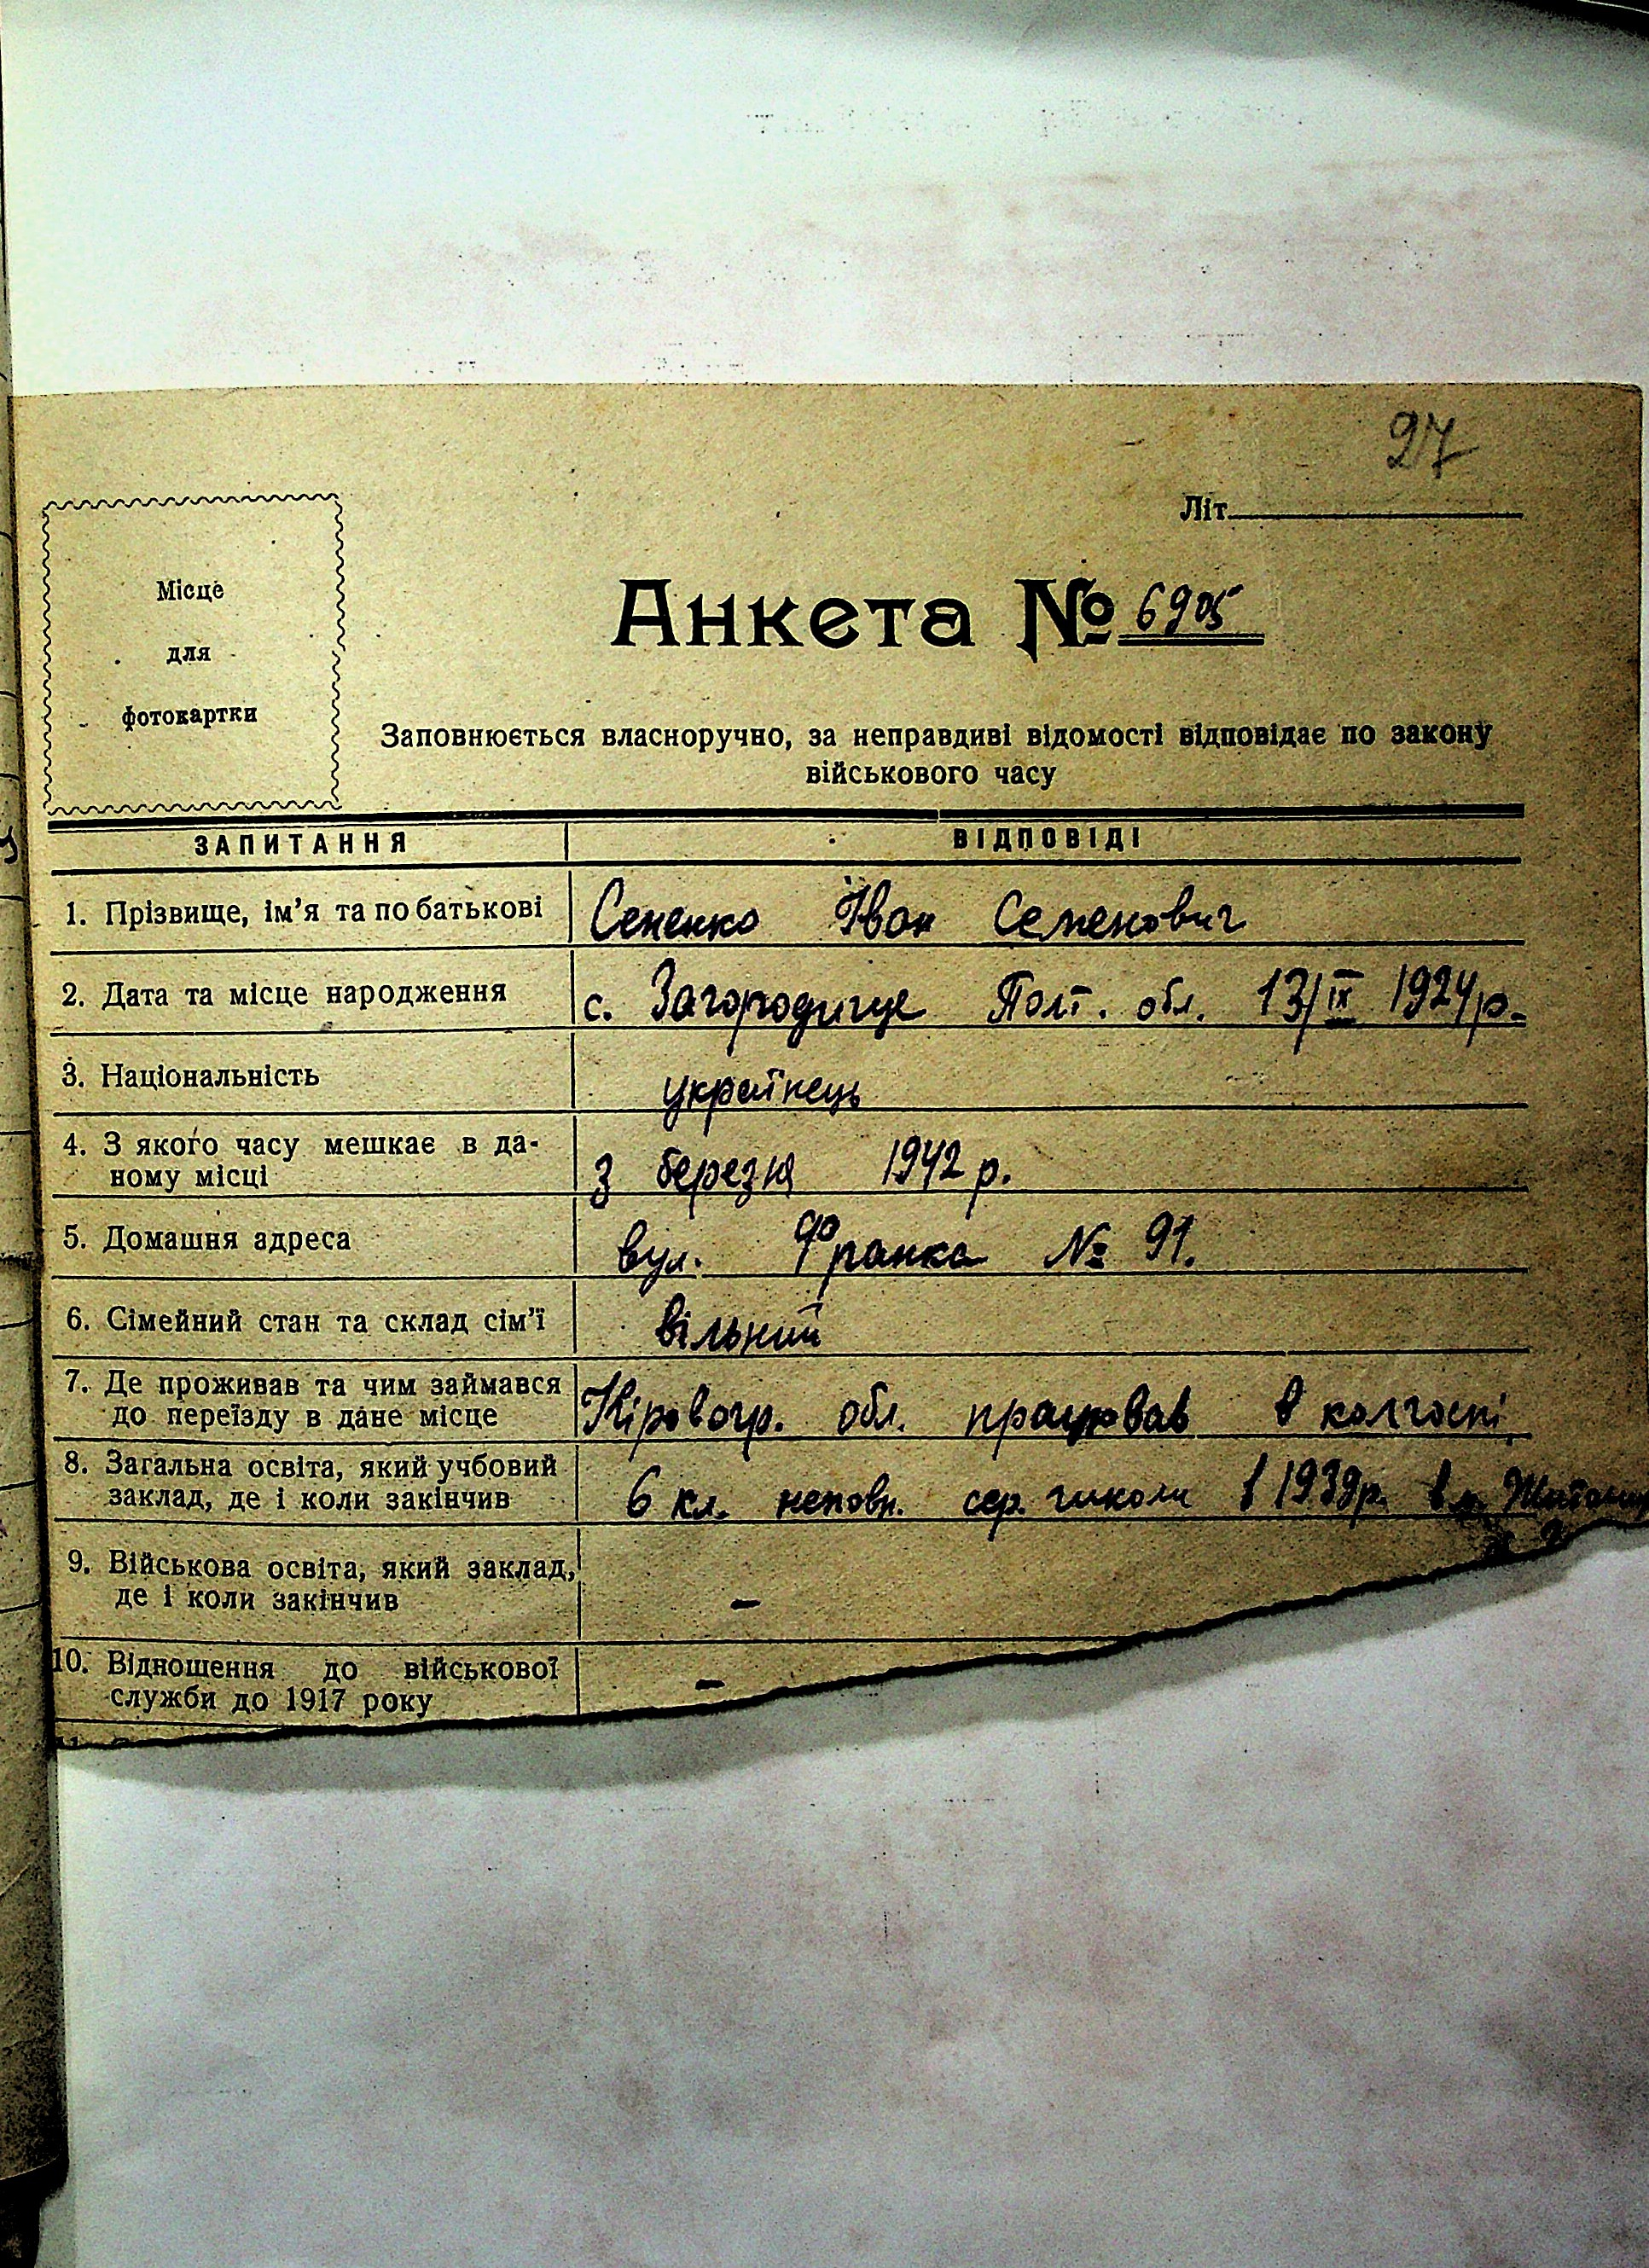 27
Літ.
Місце
для
фотокартки
Анкета № 6905
Заповнюється власноручно, за неправдиві відомості відповідає по закону
військового часу
ЗАПИТАННЯ ВІДПОВІДІ
1. Прізвище, ім'я та по батькові Сененко Іван Семенович
2. Дата та місце народження с. Загородище Полт. обл. 13/IX 1924 р.
3. Національність українець
4. З якого часу мешкає в да-
ному місці З березня 1942 р.
5. Домашня адреса вул. Франка № 91.
6. Сімейний стан та склад сім'ї вільний
7. Де проживав та чим займався
до переїзду в дане місце Кіровогр. обл. працював в колгоспі
8. Загальна освіта, який учбовий
заклад, де і коли закінчив 6 кл. неповн. сер. школи в 1939 р. в м.
9. Військова освіта, який заклад,
де і коли закінчив –
10. Відношення до військової
служби до 1917 року –